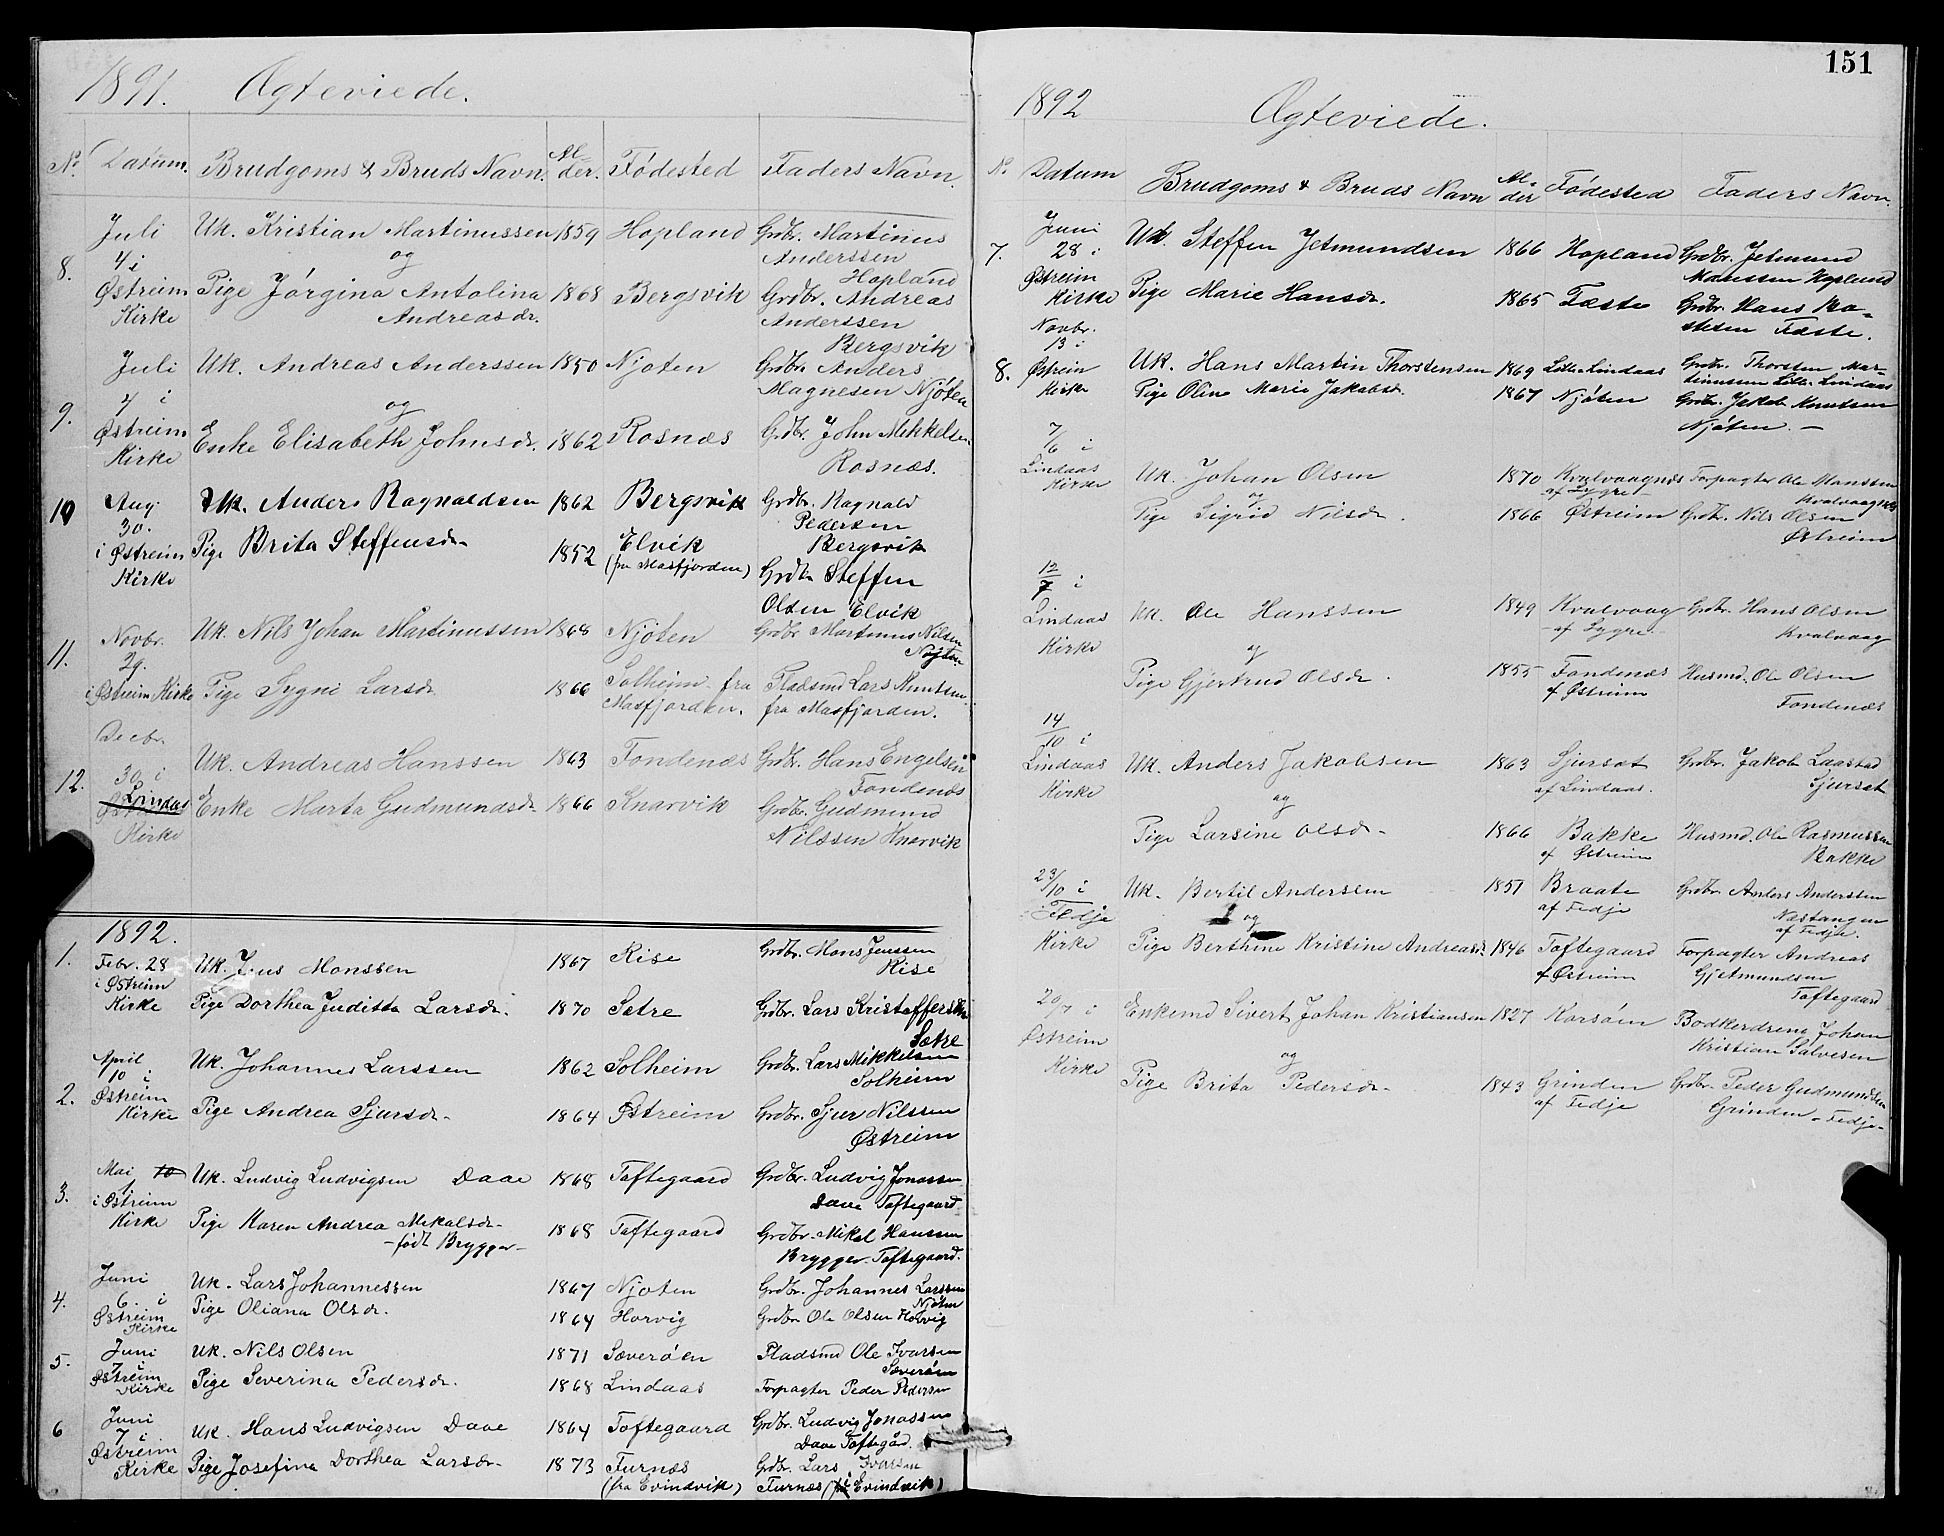 1891. Ægteviede.
No. Datum. Brudgoms & Bruds Navn. Al-der. Fødested Faders Navn.
8. Juli 4 i Østreim Kirke
Uk. Kristian Martinussen 1859 Hopland Grdbr. Martinus
og Anderssen
Hopland
Pige Jørgina Antolina 1868 Bergsvik Grdbr. Andreas
Andreasdr. Anderssen
Bergsvik
9. Juli 4 i Østreim Kirke
Uk. Andreas Anderssen 1850 Njoten Grdbr. Anders
og Magnesen Njøten
Enke Elisabeth Johnsdr. 1862 Rosnæs Grdbr. John Mikkelsen
Rosnæs.
10 Aug. 30. i Østreim Kirke
Uk. Anders Ragnaldsen 1862 Bergsvik Grdbr. Ragnald
Pedersen
Bergsvik
Pige Brita Steffensdr 1852 Elvik Grdbr Steffen
(fra Masfjorden) Olsen Elvik
11. Novbr. 29. i Østreim Kirke
Uk. Nils Johan Martinussen 1868 Njøten Grdbr Martinus Nilsen
Njøten
Pige Sygni Larsdr 1866 Solheim fra Pladsmd Lars Knutsen
Masfjorden. fra Masfjorden.
12. Decbr. 30 i Lindaas Kirke
Uk. Andreas Hanssen 1863 Fondenæs Grdbr. Hans Engelsen
Fondenæs
Enke Marta Gudmundsdr 1866 Knarvik Grdbr. Gudmund
Nilssen Knarvik
1892.
1. Febr. 28 i Østreim Kirke
Uk. Jens Monssen 1867 Rise Grdbr. Mons Jenssen
Rise
Pige Dorthea Juditta Larsdr. 1870 Sætre Grdbr. Lars Kristoffersen
Sætre
2. April 10 i Østreim Kirke
Uk. Johannes Larssen 1862 Solheim Grdbr. Lars Mikkelsen
Solheim
Pige Andrea Sjursdr. 1864 Østreim Grdbr. Sjur Nilssen
Østreim
3. Mai 10 1 i Østreim Kirke
Uk. Ludvig Ludvigsen Daae 1868 Toftegaard Grdbr. Ludvig Jonassen
Daae Toftegaard
Pige Karen Andrea Mikalsdr 1868 Toftegaard Grdbr. Mikal Hanssen
- født Brygger - Brygger Toftegaard.
4. Juni 6. i Østreim Kirke
Uk. Lars Johannessen 1867 Njoten Grdbr. Johannes Larssen
Njøten
Pige Oliana Olsdr. 1864 Horvig Grdbr Ole Olsen Horvig
5. Juni 7 i Østreim Kirke
Uk. Nils Olsen 1871 Sæverøen Pladsmd Ole Ivarsen
Sæverøen
Pige Severina Pedersdr. 1868 Lindaas Forpagter Peder Pedersen
6 Juni 7 i Østreim Kirke
Uk. Hans Ludvigsen Daae 1864 Toftegaard Grdbr. Ludvig Jonassen
Daae Toftegård.
Pige Josefina Dorthea Larsdr. 1873 Furnæs Grdbr. Lars Ivarsen
(fra Evindvik) Furnæs (i Evindvik)
151
1892 Ægteviede.
No. Datum Brudgoms & Bruds Navn Al-der Fødested Faders Navn.
7. Juni 28 i Østreim Kirke
Uk Steffen Jetmundsen 1866 Hopland Grdbr. Jetmund
Monssen Hopland
Pige Marie Hansdr. 1865 Fæste Grdbr. Hans
Fæste.
8. Novbr. 13 i Østrein Kirke
Uk. Hans Martin Thorstensen 1869 Lille Lindaas Grdbr. Thorsten Mar-
tinussen Lille Lindaas
Pige Oline Marie Jakobsdr. 1867 Njøten Grdbr. Jakob Knutsen
Njøten. -
7/6 i Lindaas Kirke
Uk. Johan Olsen 1870 Kvalvaagnes Forpagter Ole Monssen
og af Lygre Kvalvaagnes
Pige Sigrid Nilsdr. 1866 Østreim Grdbr. Nils Olsen
Østreim
12/7 i Lindaas Kirke
Uk. Ole Hanssen 1849 Kvalvaag Grdbr. Hans Olsen
og - af Lygre - Kvalvaag
Pige Gjertrud Olsdr. 1855 Fondenæs Husmd. Ole Olsen
af Østreim Fondenæs
14/10 i Lindaas Kirke
Uk. Anders Jakobsen 1863 Sjurset Grdbr. Jakob Laastad
og af Lindaas. Sjurset
Pige Larsine Olsdr. 1866 Bakke Husmd. Ole Rasmussen
af Østreim Bakke
23/10 i Fedje Kirke
Uk. Bertil Andersen 1851 Braate Grdbr. Anders Anderssen
og af Fedje Nastangen
af Fedje.
Pige Berthine Kristine Andreasdr. 1846 Toftegaard Forpagter Andreas
af Østreim Gjetmundsen
Toftegaard
20/7 i Østreim Kirke
Enkemd Sivert Johan Kristiansen 1827 Korsøen Bødkerdreng Johan
og Kristian Salvesen
Pige Brita Pedersdr. 1843 Grinden Grdbr. Peder Gudmundsen
af Fedje Grinden - Fedje -